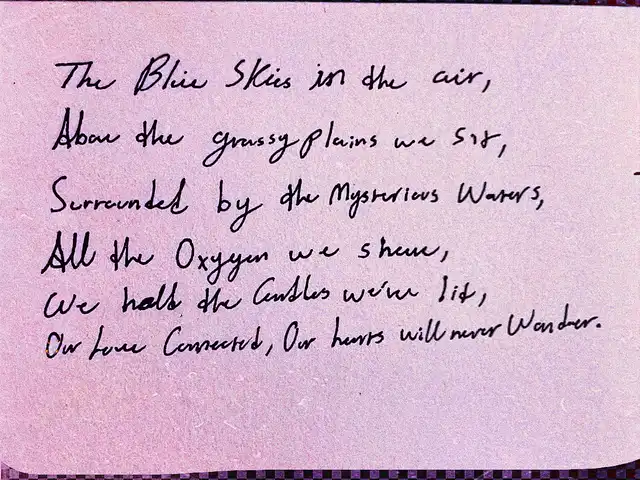 The Blue Skies in the air,
Above the grassy plains we sit,
Surrounded by the Mysterious Waters,
All the Oxygen we share,
We hold the Candles we've lit,
Our Love Connected, Our hearts will never Wander.